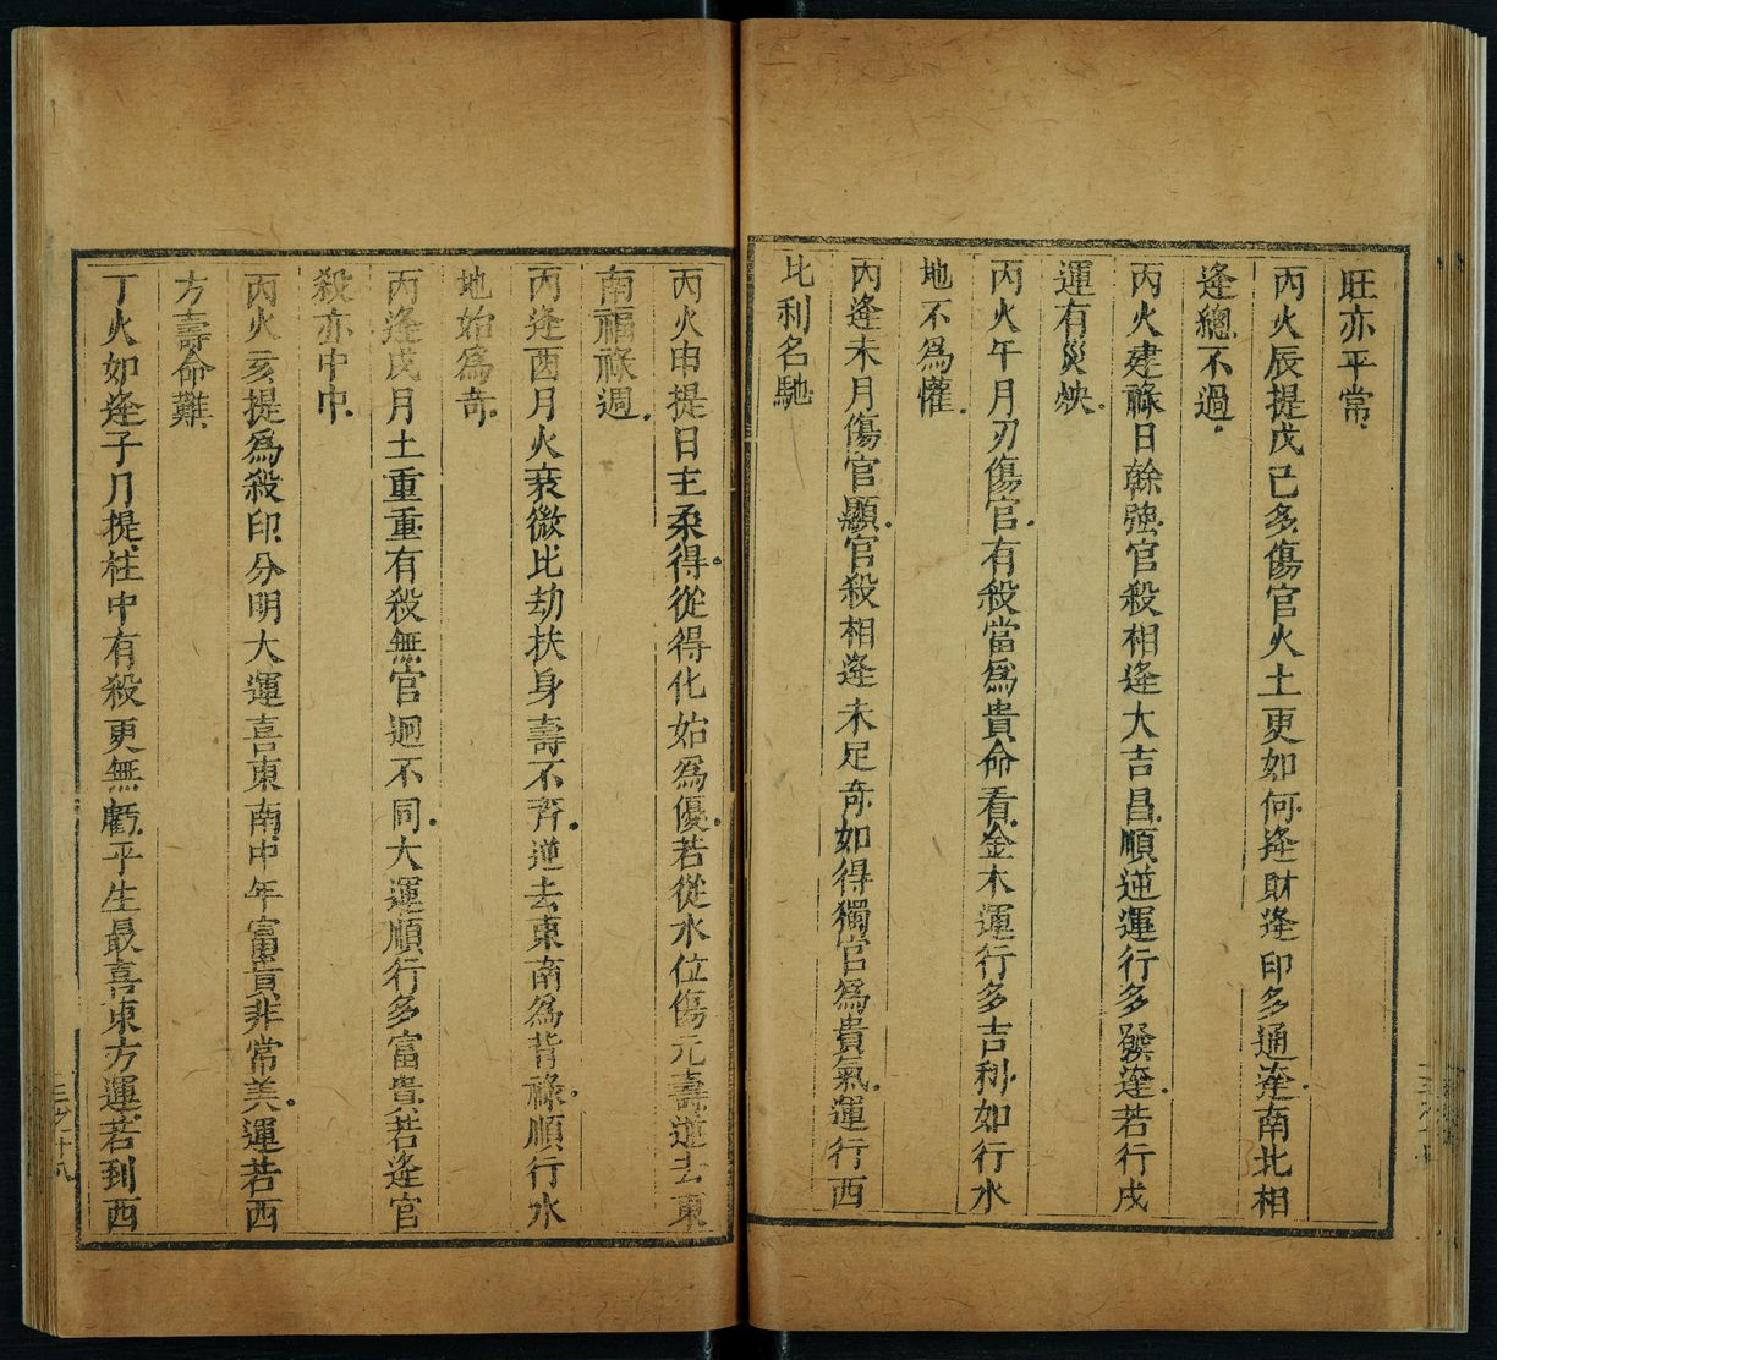 旺亦平常
丙火辰提戊己多傷官火土更如何逢財逢印多通達南北相
逢總不過
丙火建祿日幹強官殺相逢大吉昌順逆運行多發達若行戌
運有災殃
丙火午月刃傷官有殺當爲貴命看金木運行多吉利如行水
地不爲懽
丙逢未月傷官顯官殺相逢未足奇如得獨官爲貴氣運行西
比利名馳
丙火申提日主柔得從得化始爲優若從水位傷元壽逆去東
南福祿週
丙逢酉月火衰微比劫扶身壽不齊逆去東南爲背祿順行水
地始爲奇
丙逢戌月土重重有殺無官迥不同大運順行多富貴若逢官
殺亦中中
丙火亥提爲殺印分明大運喜東南中年富貴非常美運若西
方壽命難
丁火如逢子月提柱中有殺更無虧平生最喜東方運若到西